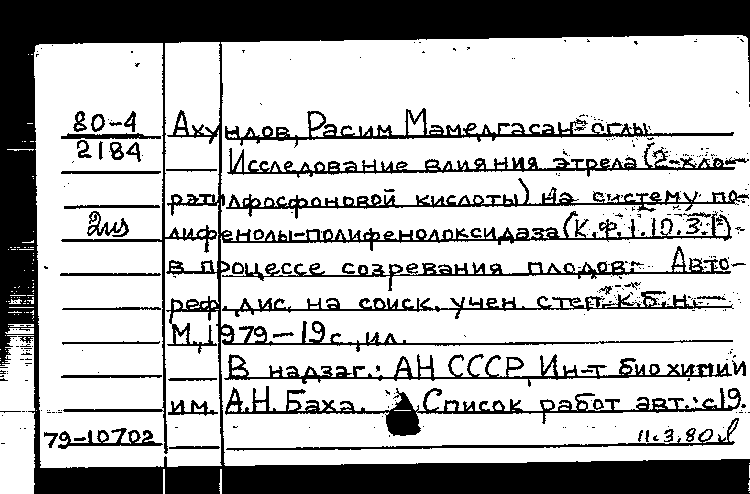 80-4
2184
2из
Ахундов, Расим Мамедгасан оглы
Исследование влияния этрела (2-хло-
рэтилфосфоновой кислоты) на систему по-
лифенолы-полифенолоксидаза (К.Ф.1.10.3.1)
в процессе созревания плодов: Авто-
реф. дис. на соиск. учен. степ. к.б.н. —
М., 1979. — 19 с., ил.
В надзаг.: АН СССР, Ин-т биохимии
им. А.Н. Баха. Список работ авт.: с.19.
79-10702
11.3.80